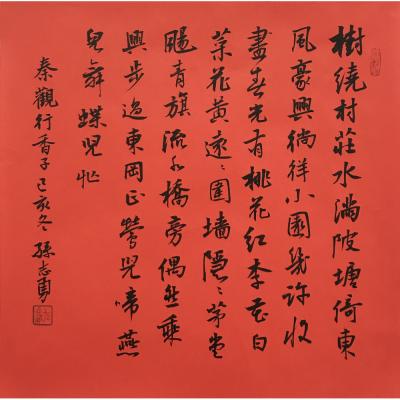 樹繞村莊水滿陂塘倚東
風豪興徜徉小園幾許收
盡春光有桃花紅李花白
菜花黃遠々圍墻隱々茅堂
颺青旗流水橋旁偶然乘
興步過東岡正鶯兒啼燕
兒舞蝶兒忙
秦觀行香子己亥冬孫志勇